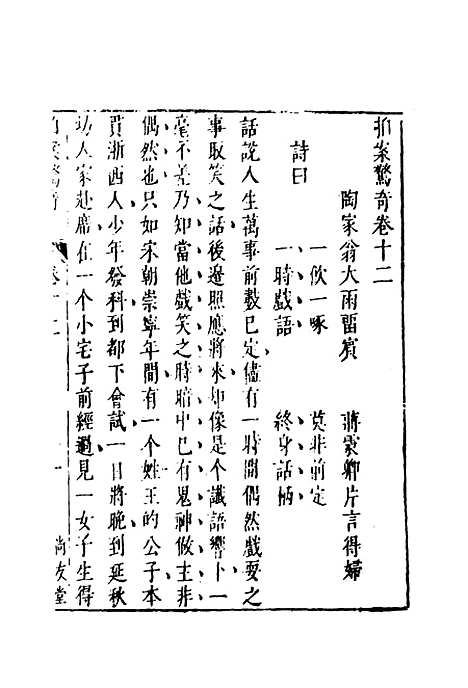 拍案驚奇卷十二
陶家翁大雨畱賓　蔣震卿片言得婦
詩曰
一飲一啄　莫非前定
一時戲語　終身話柄
話說人生萬事前數已定儘有一時間偶然戲耍之
事取笑之話後邊照應將來却像是个讖語響卜一
毫不差乃知當他戲笑之時暗中已有鬼神做主非
偶然也只如宋朝崇寧年間有一个姓王的公子本
貫浙西人少年發科到都下會試一日將晚到延秋
坊人家赴席在一个小宅子前經過見一女子生得
拍案驚奇　卷十二　一　尚友堂